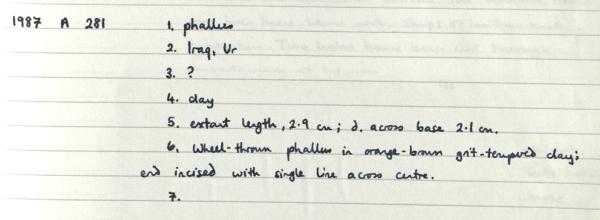 1987 A 281 1. phallus
2. Iraq, Ur
3. ?
4. clay
5. extant length, 2.9 cm; d. across base 2.1 cm.
6. Wheel-thrown phallus in orange-brown grit-tempered clay;
end incised with single line across centre.
7.